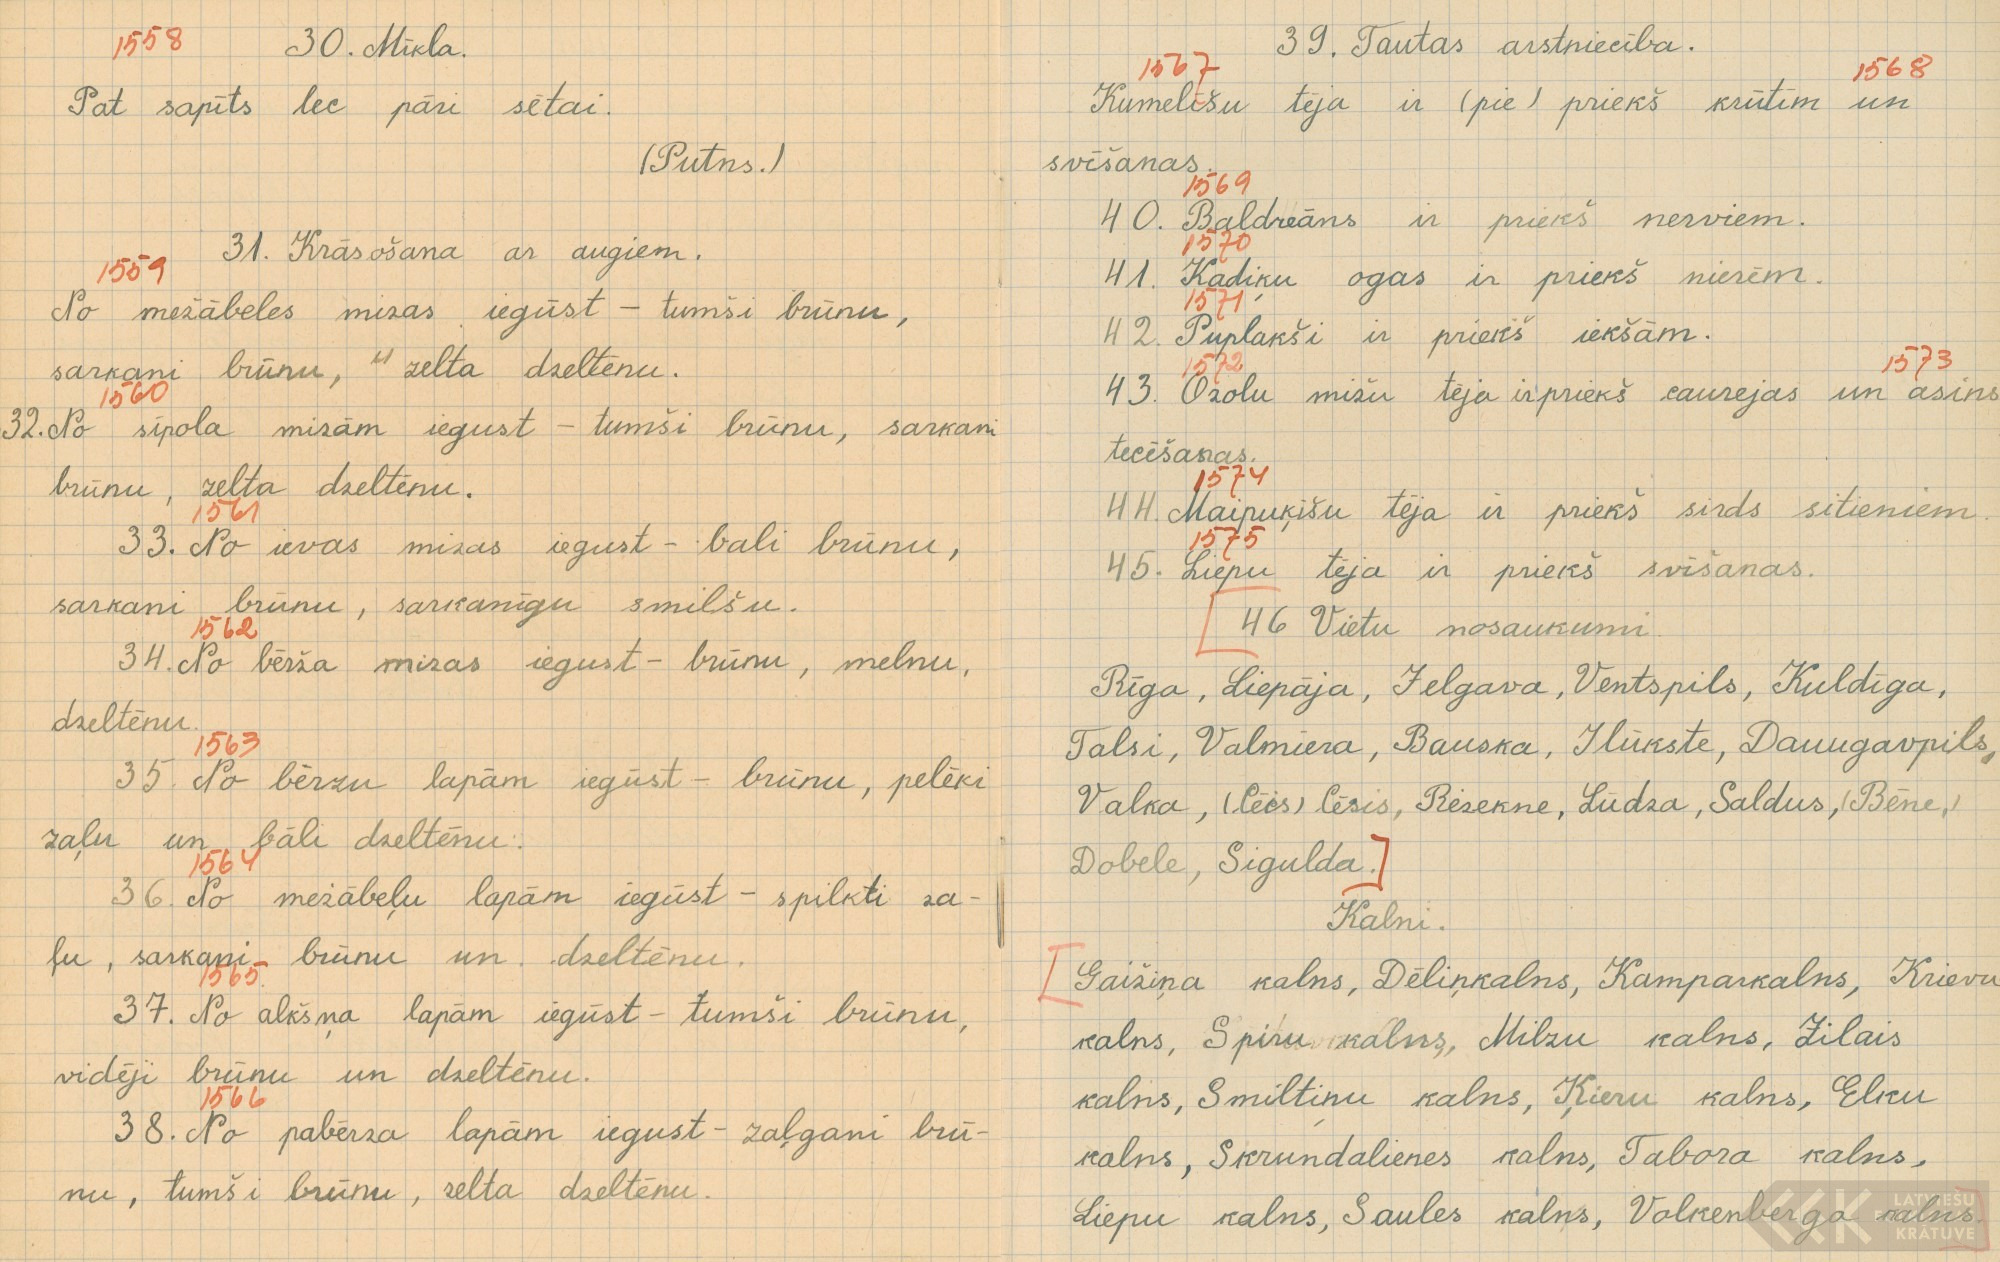 1558 30. Mīkla.
Pat sapīts lec pāri sētai.
(Putns.)
31. Krāsošana ar augiem.
1559
No mežābeles mizas iegūst – tumši brūnu,
sarkani brūnu, zelta dzeltēnu.
1560
32. No sīpola mizām iegust – tumši brūnu, sarkani
brūnu, zelta dzeltēnu.
1561
33. No ievas mizas iegust – bali brūnu,
sarkani brūnu, sarkanīgu smilšu.
1562
34. No bērža mizas iegust – brūnu, melnu,
dzeltēnu.
1563
35. No bērzu lapām iegūst – brūnu, pelēki
zaļu un bāli dzeltēnu.
1564
36. No mežābeļu lapām iegūst – spilkti za-
ļu, sarkani brūnu un dzeltēnu.
1565.
37. No alkšņa lapām iegūst – tumši brūnu,
vidēji brūnu un dzeltēnu.
1566
38. No pabērza lapām iegust – zaļgani brū-
nu, tumši brūnu, zelta dzeltēnu.
39. Tautas arstniecība.
1567 1568
Kumelīšu tēja ir (pie) priekš krūtīm un
svīšanas.
1569
40. Baldreāns ir priekš nerviem.
1570
41. Kadiķu ogas ir priekš nierēm.
1571
42. Puplakši ir priekš iekšām.
1572 1573
43. Ozolu mizu tēja ir priekš caurejas un asins
tecēšanas.
1574
44. Maipuķīšu tēja ir priekš sirds sitieniem.
1575
45. Liepu tēja ir priekš svīšanas.
[46 Vietu nosaukumi.
Rīga, Liepāja, Jelgava, Ventspils, Kuldīga,
Talsi, Valmiera, Bauska, Ilūkste, Dauugavpils,
Valka, (Cēcs) Cēsis, Rēzekne, Lūdza, Saldus, (Bēne,)
Dobele, Sigulda.]
Kalni.
[Gaiziņa kalns, Dēliņkalns, Kamparkalns, Krievu
kalns, Spiru kalns, Milzu kalns, Zilais
kalns, Smiltiņu kalns, Ķieru kalns, Elku
kalns, Skrundalienes kalns, Tabora kalns,
Liepu kalns, Saules kalns, Volkenberga kalns.]
LATVIEŠU
KRĀTUVE